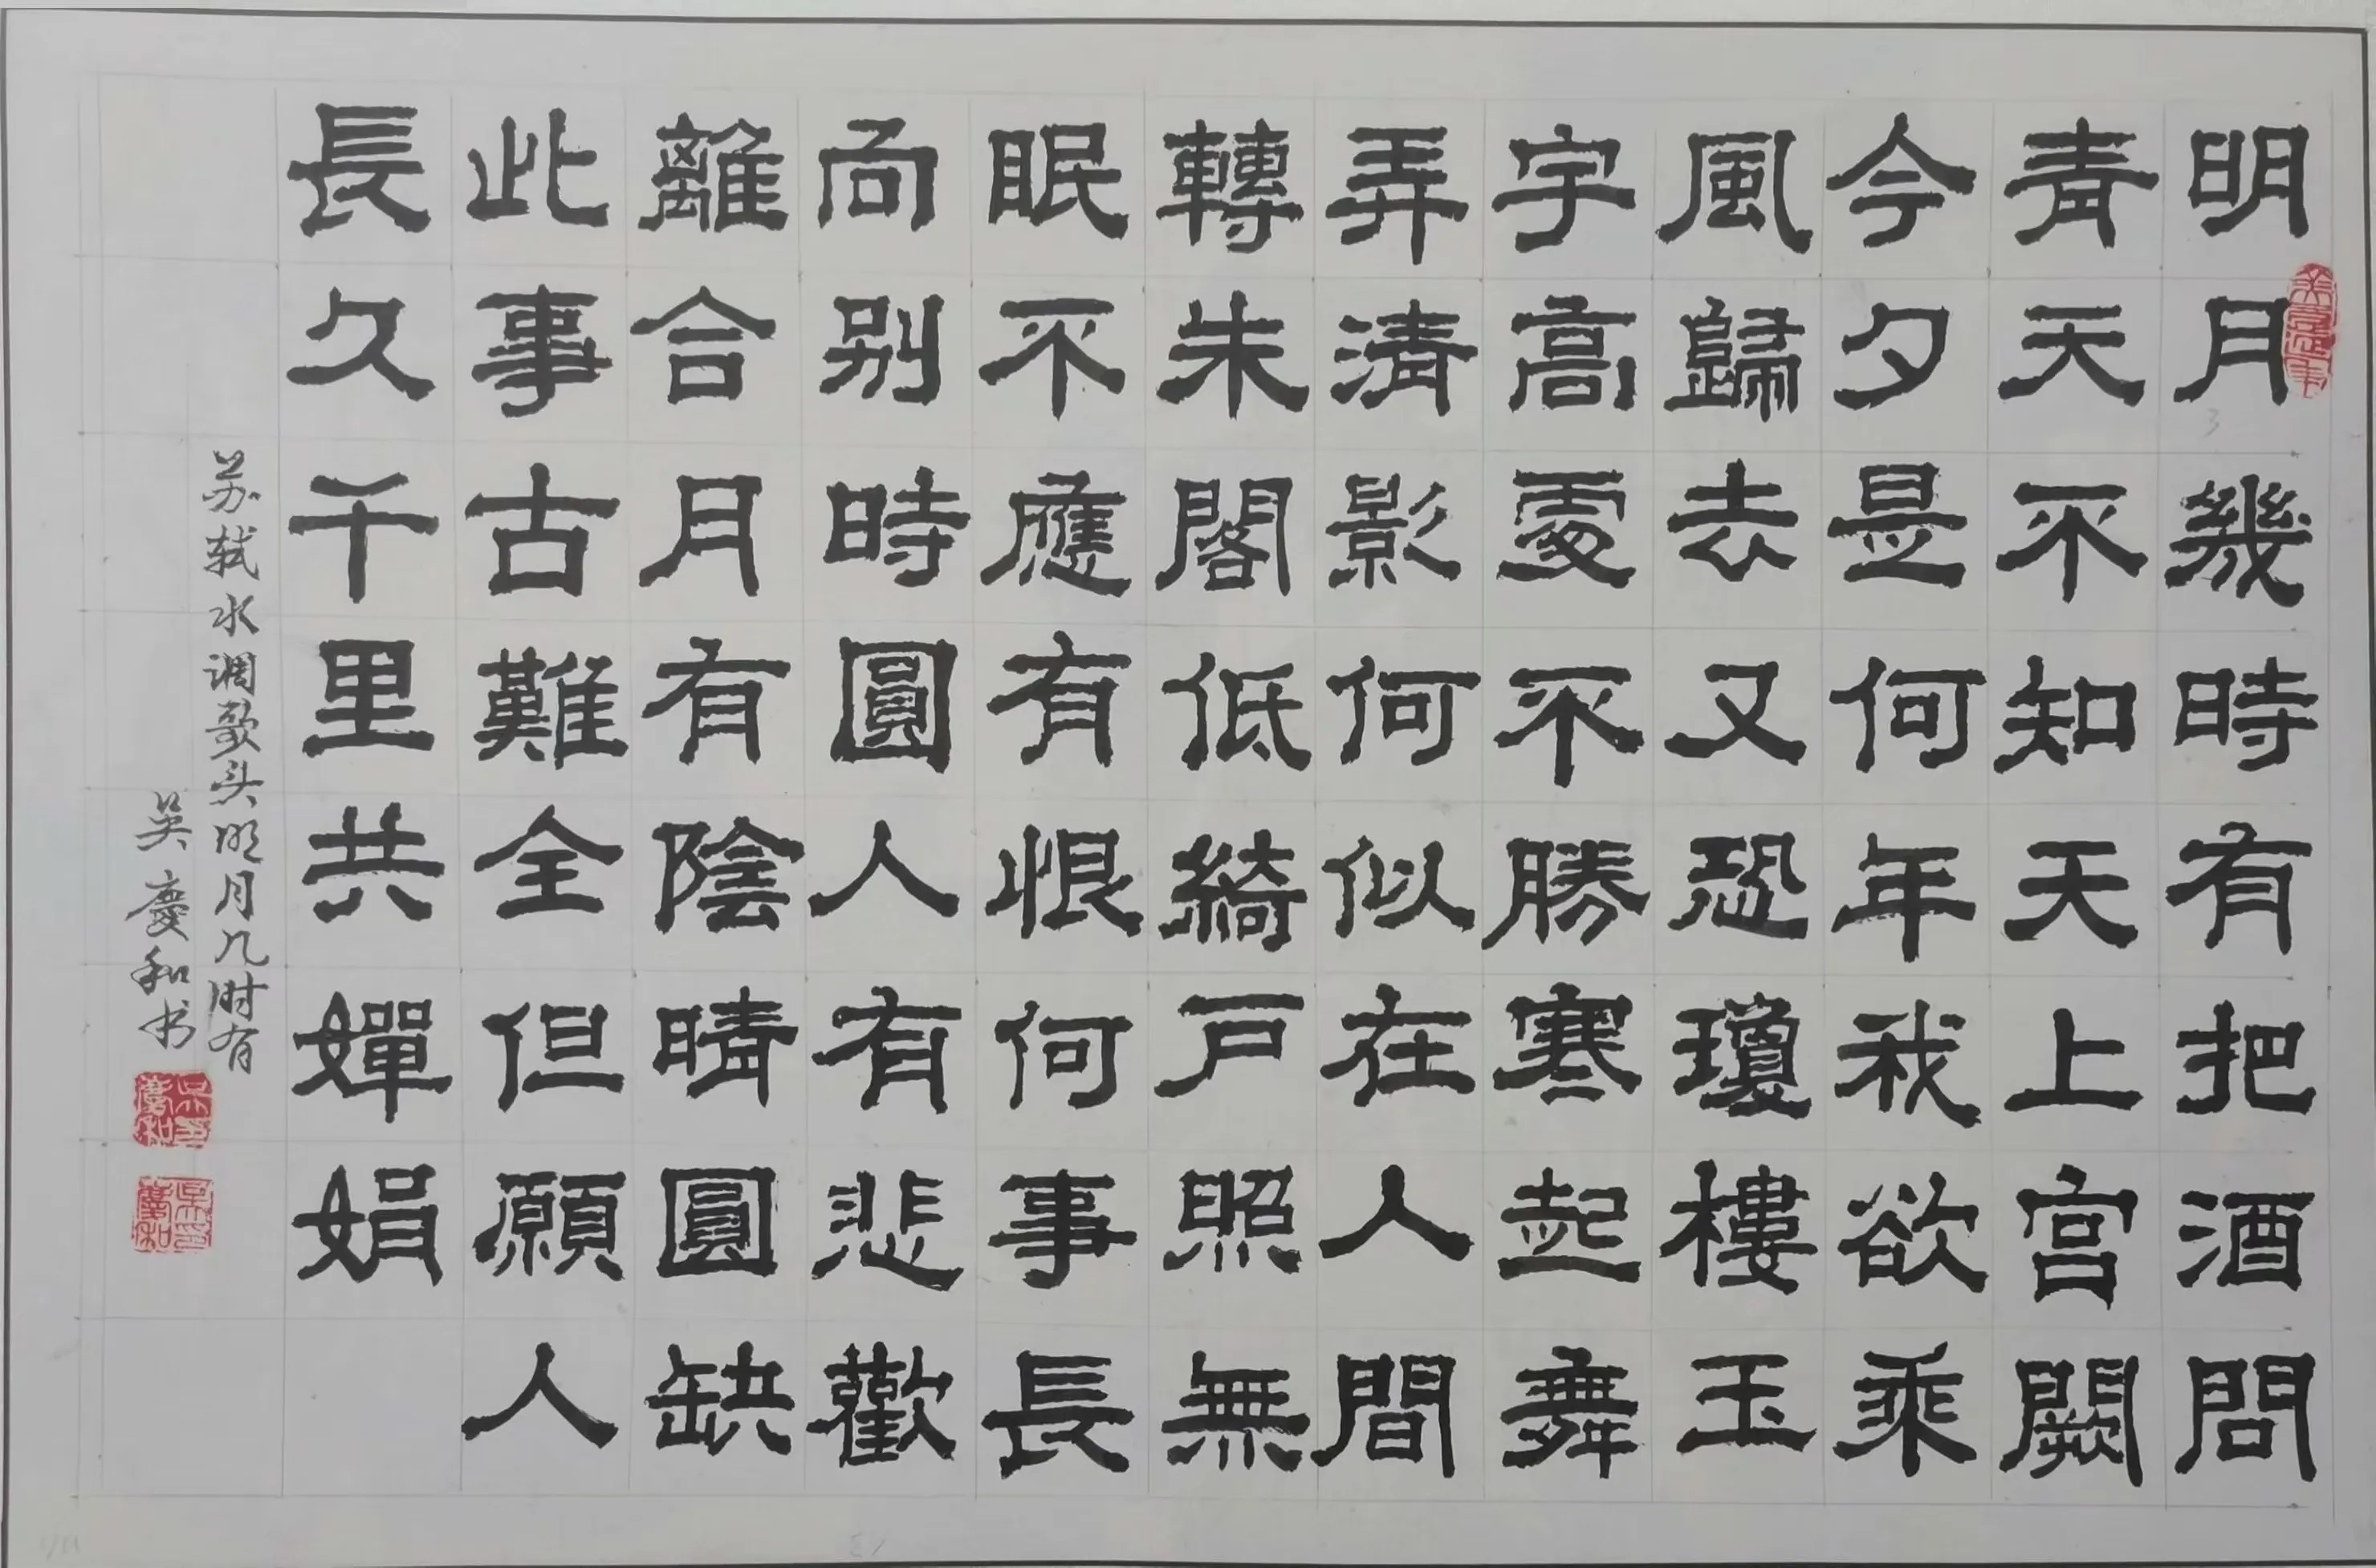 明月幾時有把酒問
青天不知天上宫闕
今夕是何年我欲乘
風歸去又恐瓊樓玉
宇高處不勝寒起舞
弄清影何似在人間
轉朱閣低綺戶照無
眠不應有恨何事長
向别時圓人有悲歡
離合月有陰晴圓缺
此事古難全但願人
長久千里共嬋娟
苏轼水调歌头明月几时有
吴慶和书
吴印慶和
吴印慶和